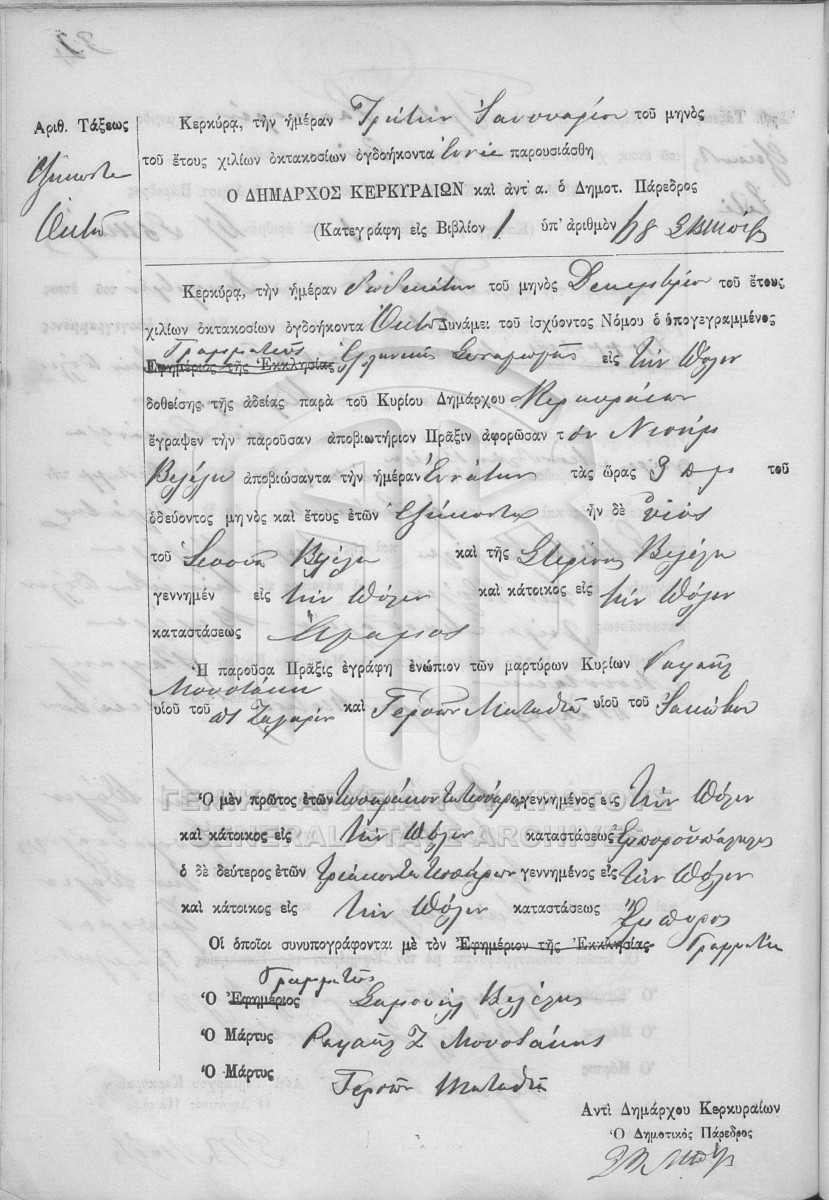 Ἀριθ. Τάξεως
Ἑξήκοντα
Ὀκτὼ
Κερκύρᾳ, τὴν ἡμέραν Τρίτην Ἰανουαρίου τοῦ μηνὸς
τοῦ ἔτους χιλίων ὀκτακοσίων ὀγδοήκοντα ἐννέα παρουσιάσθη
Ο ΔΗΜΑΡΧΟΣ ΚΕΡΚΥΡΑΙΩΝ καὶ ἀντ' α. ὁ Δημοτ. Πάρεδρος
(Κατεγράφη εἰς Βιβλίον 1 ὑπ' ἀριθμὸν 68
Κερκύρᾳ, τὴν ἡμέραν δωδεκάτην τοῦ μηνὸς Δεκεμβρίου τοῦ ἔτους
χιλίων ὀκτακοσίων ὀγδοήκοντα Ὀκτὼ Δυνάμει τοῦ ἰσχύοντος Νόμου ὁ ὑπογεγραμμένος
Γραμματεὺς
Ἐφημέριος τῆς Ἐκκλησίας Συναγωγῆς εἰς τὴν Πόλιν
δοθείσης τῆς ἀδείας παρὰ τοῦ Κυρίου Δημάρχου Κερκυραίων
ἔγραψεν τὴν παροῦσαν ἀποβιωτήριον Πρᾶξιν ἀφορῶσαν τὸν Νισὴμ
Βελέλη ἀποβιώσαντα τὴν ἡμέραν Ἐννάτην τὰς ὥρας 9 π.μ. τοῦ
ὁδεύοντος μηνὸς καὶ ἔτους ἐτῶν Ἑξήκοντα ἦν δὲ υἱὸς
τοῦ Βελέλη καὶ τῆς Στερίνας Βελέλη
γεννημέν εἰς τὴν Πόλιν καὶ κάτοικος εἰς τὴν Πόλιν
καταστάσεως Ἄγαμος
Ἡ παροῦσα Πρᾶξις ἐγράφη ἐνώπιον τῶν μαρτύρων Κυρίων Ραφαὴλ
Μουστάκη
υἱοῦ τοῦ ποτὲ Ζαχαρίου καὶ Γερσὼν Ματαθία υἱοῦ τοῦ Ἰακώβου
Ὁ μὲν πρῶτος ἐτῶν Τεσσαράκοντα τεσσάρων γεννημένος εἰς τὴν Πόλιν
καὶ κάτοικος εἰς τὴν Πόλιν καταστάσεως Ἐμποροϋπάλληλος
ὁ δὲ δεύτερος ἐτῶν τριάκοντα τεσσάρων γεννημένος εἰς τὴν Πόλιν
καὶ κάτοικος εἰς τὴν Πόλιν καταστάσεως Ἔμπορος
Οἱ ὁποῖοι συνυπογράφονται μὲ τὸν Ἐφημέριον τῆς Ἐκκλησίας Γραμματέα
Γραμματεὺς
Ὁ Ἐφημέριος Σαμουὴλ Βελέλης
Ὁ Μάρτυς Ραφαὴλ Ζ Μουστάκης
Ὁ Μάρτυς
Γερσὼν Ματαθία
Ἀντὶ Δημάρχου Κερκυραίων
Ὁ Δημοτικὸς Πάρεδρος
ΓΕΝΙΚΑ ΑΡΧΕΙΑ ΤΟΥ ΚΡΑΤΟΥΣ
GENERAL STATE ARCHIVES